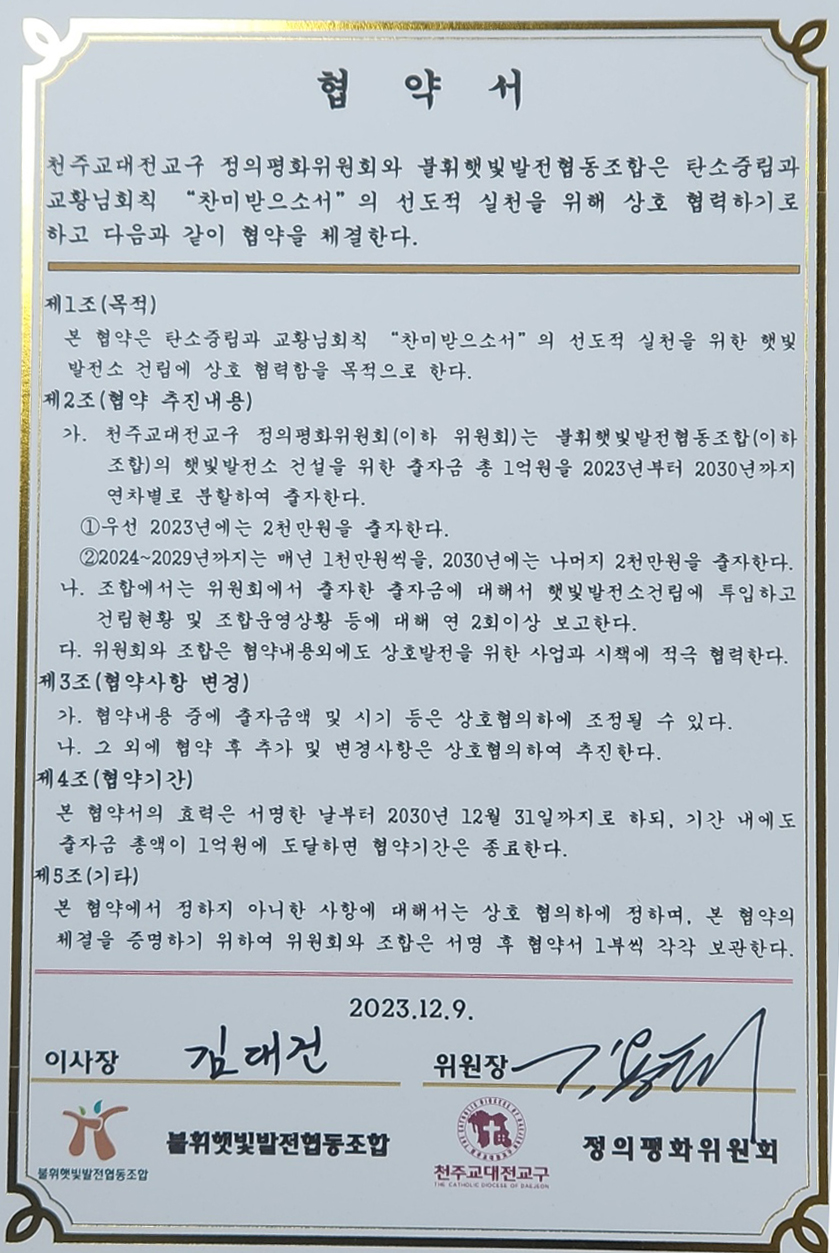 협 약 서
천주교대전교구 정의평화위원회와 불휘햇빛발전협동조합은 탄소중립과
교황님회칙 “찬미받으소서”의 선도적 실천을 위해 상호 협력하기로
하고 다음과 같이 협약을 체결한다.
제1조(목적)
본 협약은 탄소중립과 교황님회칙 “찬미받으소서”의 선도적 실천을 위한 햇빛
발전소 건립에 상호 협력함을 목적으로 한다.
제2조(협약 추진내용)
가. 천주교대전교구 정의평화위원회(이하 위원회)는 불휘햇빛발전협동조합(이하
조합)의 햇빛발전소 건설을 위한 출자금 총 1억원을 2023년부터 2030년까지
연차별로 분할하여 출자한다.
①우선 2023년에는 2천만원을 출자한다.
②2024~2029년까지는 매년 1천만원씩을, 2030년에는 나머지 2천만원을 출자한다.
나. 조합에서는 위원회에서 출자한 출자금에 대해서 햇빛발전소건립에 투입하고
건립현황 및 조합운영상황 등에 대해 연 2회이상 보고한다.
다. 위원회와 조합은 협약내용외에도 상호발전을 위한 사업과 시책에 적극 협력한다.
제3조(협약사항 변경)
가. 협약내용 중에 출자금액 및 시기 등은 상호협의하에 조정될 수 있다.
나. 그 외에 협약 후 추가 및 변경사항은 상호협의하여 추진한다.
제4조(협약기간)
본 협약서의 효력은 서명한 날부터 2030년 12월 31일까지로 하되, 기간 내에도
출자금 총액이 1억원에 도달하면 협약기간은 종료한다.
제5조(기타)
본 협약에서 정하지 아니한 사항에 대해서는 상호 협의하에 정하며, 본 협약의
체결을 증명하기 위하여 위원회와 조합은 서명 후 협약서 1부씩 각각 보관한다.
2023.12.9.
이사장 김대건 위원장 김용태
불휘햇빛발전협동조합 정의평화위원회
불휘햇빛발전협동조합 천주교대전교구
THE CATHOLIC DIOCESE OF DAEJEON